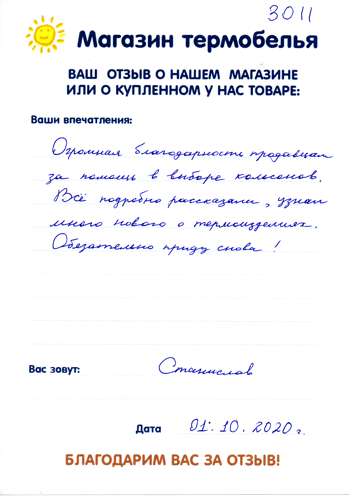 3011
Магазин термобелья
ВАШ ОТЗЫВ О НАШЕМ МАГАЗИНЕ
ИЛИ О КУПЛЕННОМ У НАС ТОВАРЕ:
Ваши впечатления:
Огромная благодарность продавцам
за помощь в выборе кальсонов.
Всё подробно рассказали, узнал
много нового о термоизделиях.
Обязательно приду снова!
Вас зовут: Станислав
Дата 01.10.2020г.
БЛАГОДАРИМ ВАС ЗА ОТЗЫВ!